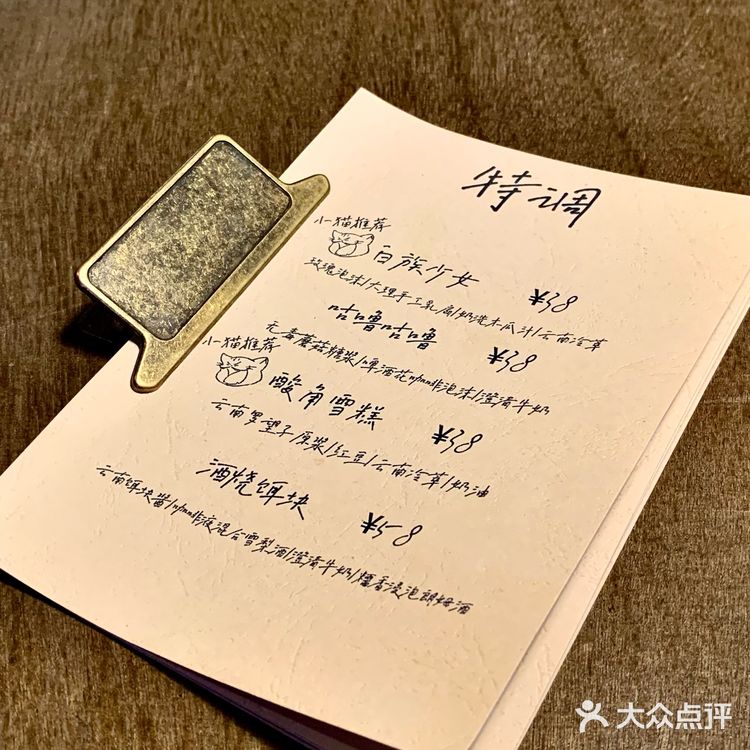 特调
小猫推荐
白族少女 ¥38
玫瑰泡沫/大理手工乳扇/奶洗木瓜汁/云南冷萃
咕噜咕噜 ¥38
无毒蘑菇糖浆/啤酒花咖啡泡沫/澄清牛奶
小猫推荐
酸角雪糕 ¥38
云南罗望子原浆/红豆/云南冷萃/奶油
酒烧饵块 ¥58
云南饵块酱/咖啡液混合雪梨酒/澄清牛奶/檀香浸泡朗姆酒
大众点评